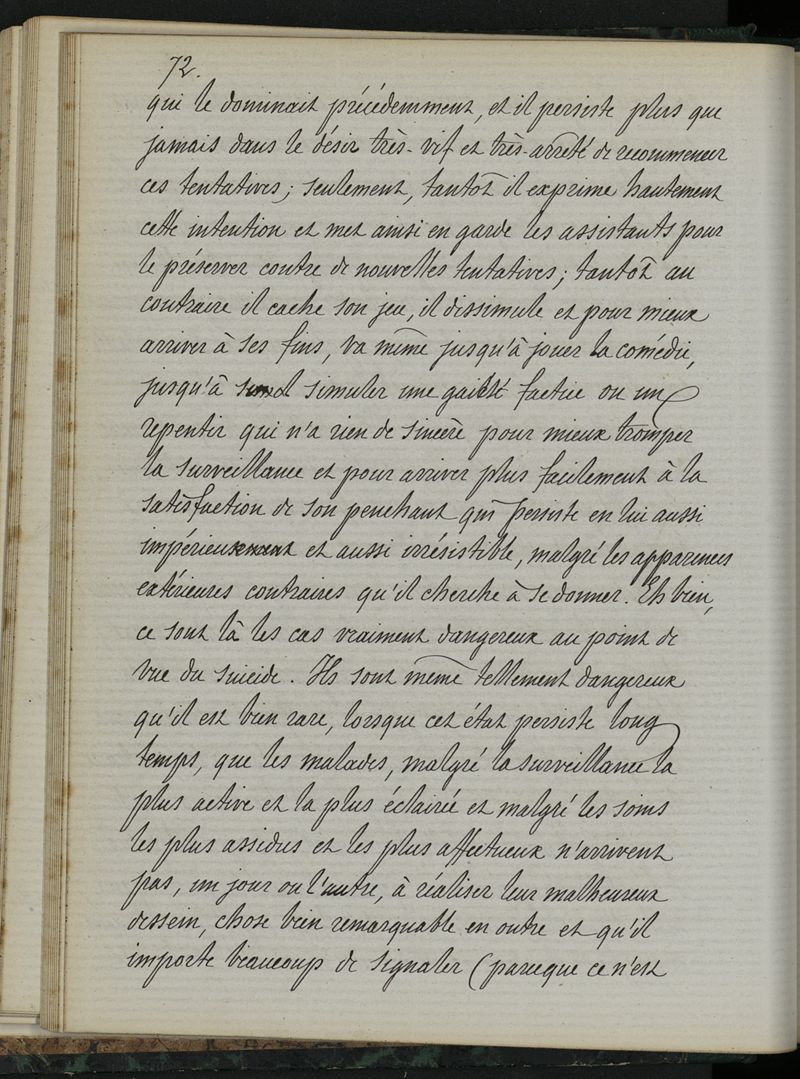 72.
qui le dominait précédemment, et il persiste plus que
jamais dans le désir très-vif et très-arrêté de recommencer
ces tentatives; seulement, tantôt il exprime hautement
cette intention et met ainsi en garde les assistants pour
le préserver contre de nouvelles tentatives; tantôt au
contraire il cache son jeu, il dissimule et pour mieux
arriver à ses fins, va même jusqu'à jouer la comédie,
jusqu'à simuler une gaieté factice ou un
repentir qui n'a rien de sincère pour mieux tromper
la surveillance et pour arriver plus facilement à la
satisfaction de son penchant qui persiste en lui aussi
impérieux et aussi irrésistible, malgré les apparences
extérieures contraires qu'il cherche à se donner. Eh bien,
ce sont là les cas vraiment dangereux au point de
vue du suicide. Ils sont même tellement dangereux
qu'il est bien rare, lorsque cet état persiste long
temps, que les malades, malgré la surveillance la
plus active et la plus éclairée et malgré les soins
les plus assidus et les plus affectueux n'arrivent
pas, un jour ou l'autre, à réaliser leur malheureux
dessein, chose bien remarquable en outre et qu'il
importe beaucoup de signaler (parceque ce n'est